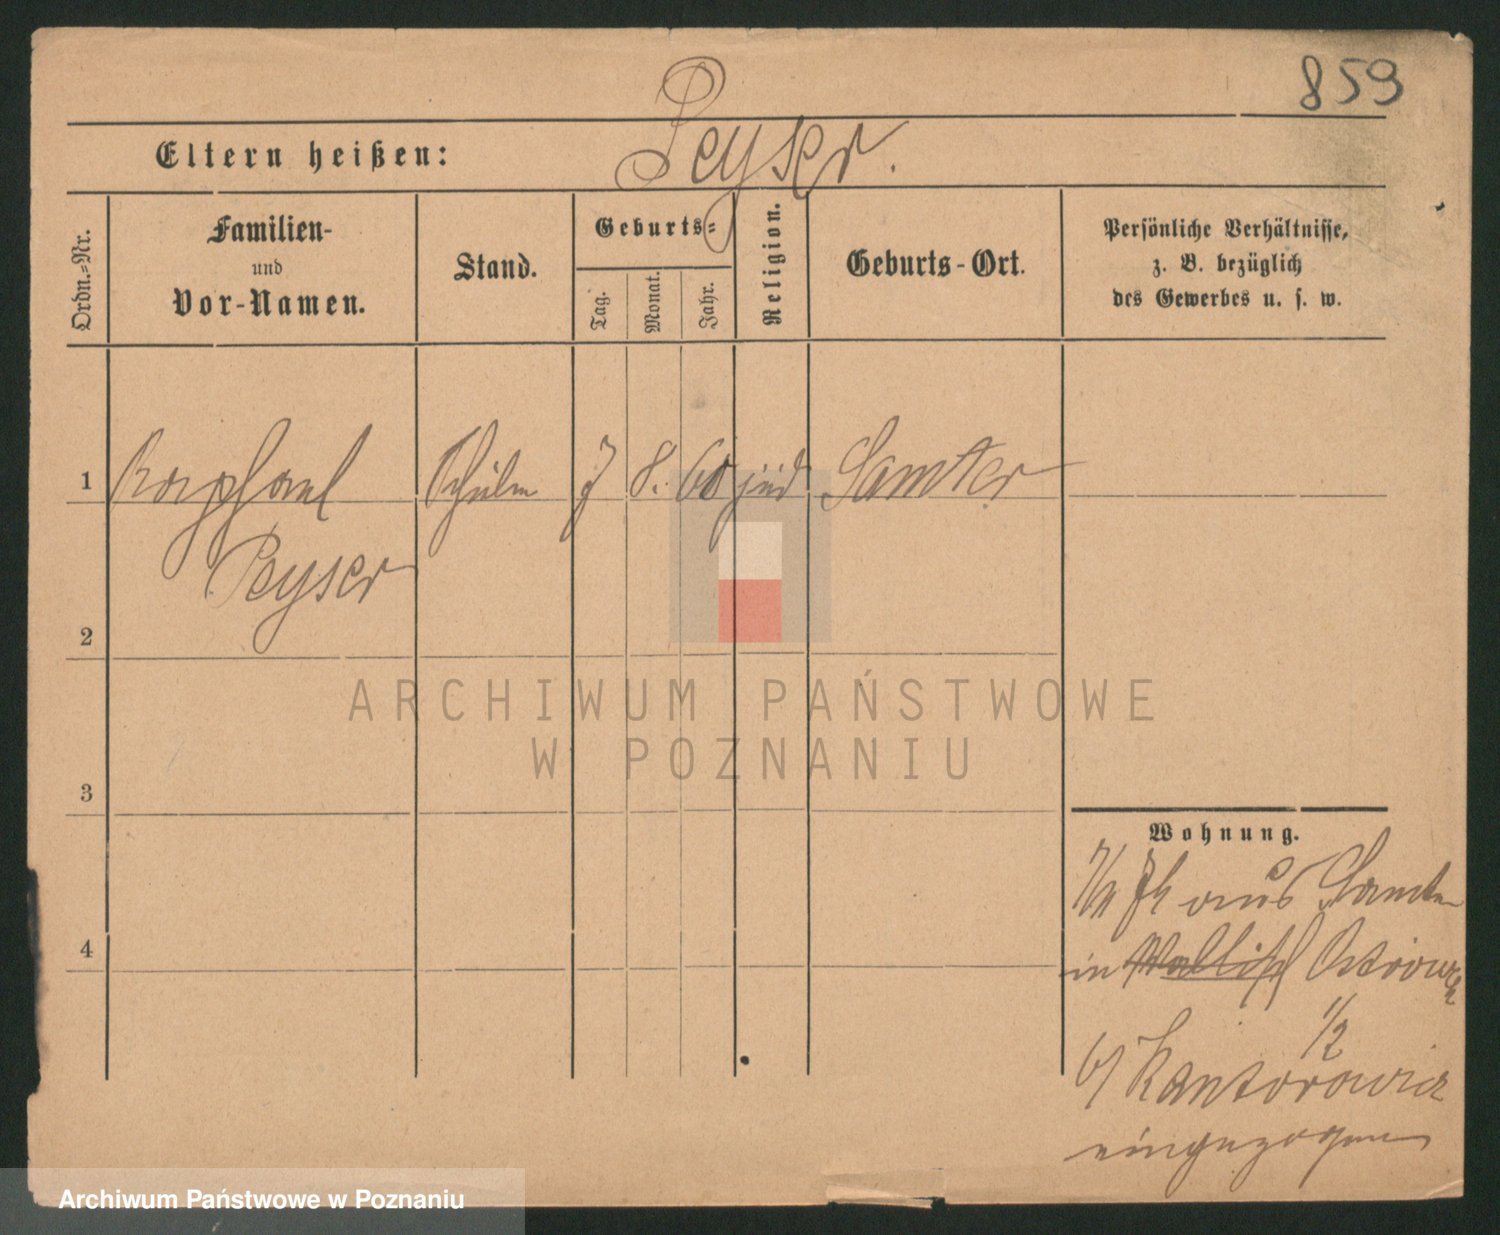 859
Peyser.
Eltern heißen:
Ordn.=Nr.
Familien-
und
Vor-Namen.
Stand.
Geburts=
Tag.
Monat.
Jahr.
Religion.
Geburts-Ort.
Persönliche Verhältnisse,
z. B. bezüglich
des Gewerbes u. s. w.
1 Raphael 8. 60 jüd Samter
Peyser
2
3
4
Wohnung.
aus Samter
in Wallisch Ostrowek
1/2
b/ Kantorowicz
eingezogen
ARCHIWUM PAŃSTWOWE
W POZNANIU
Archiwum Państwowe w Poznaniu